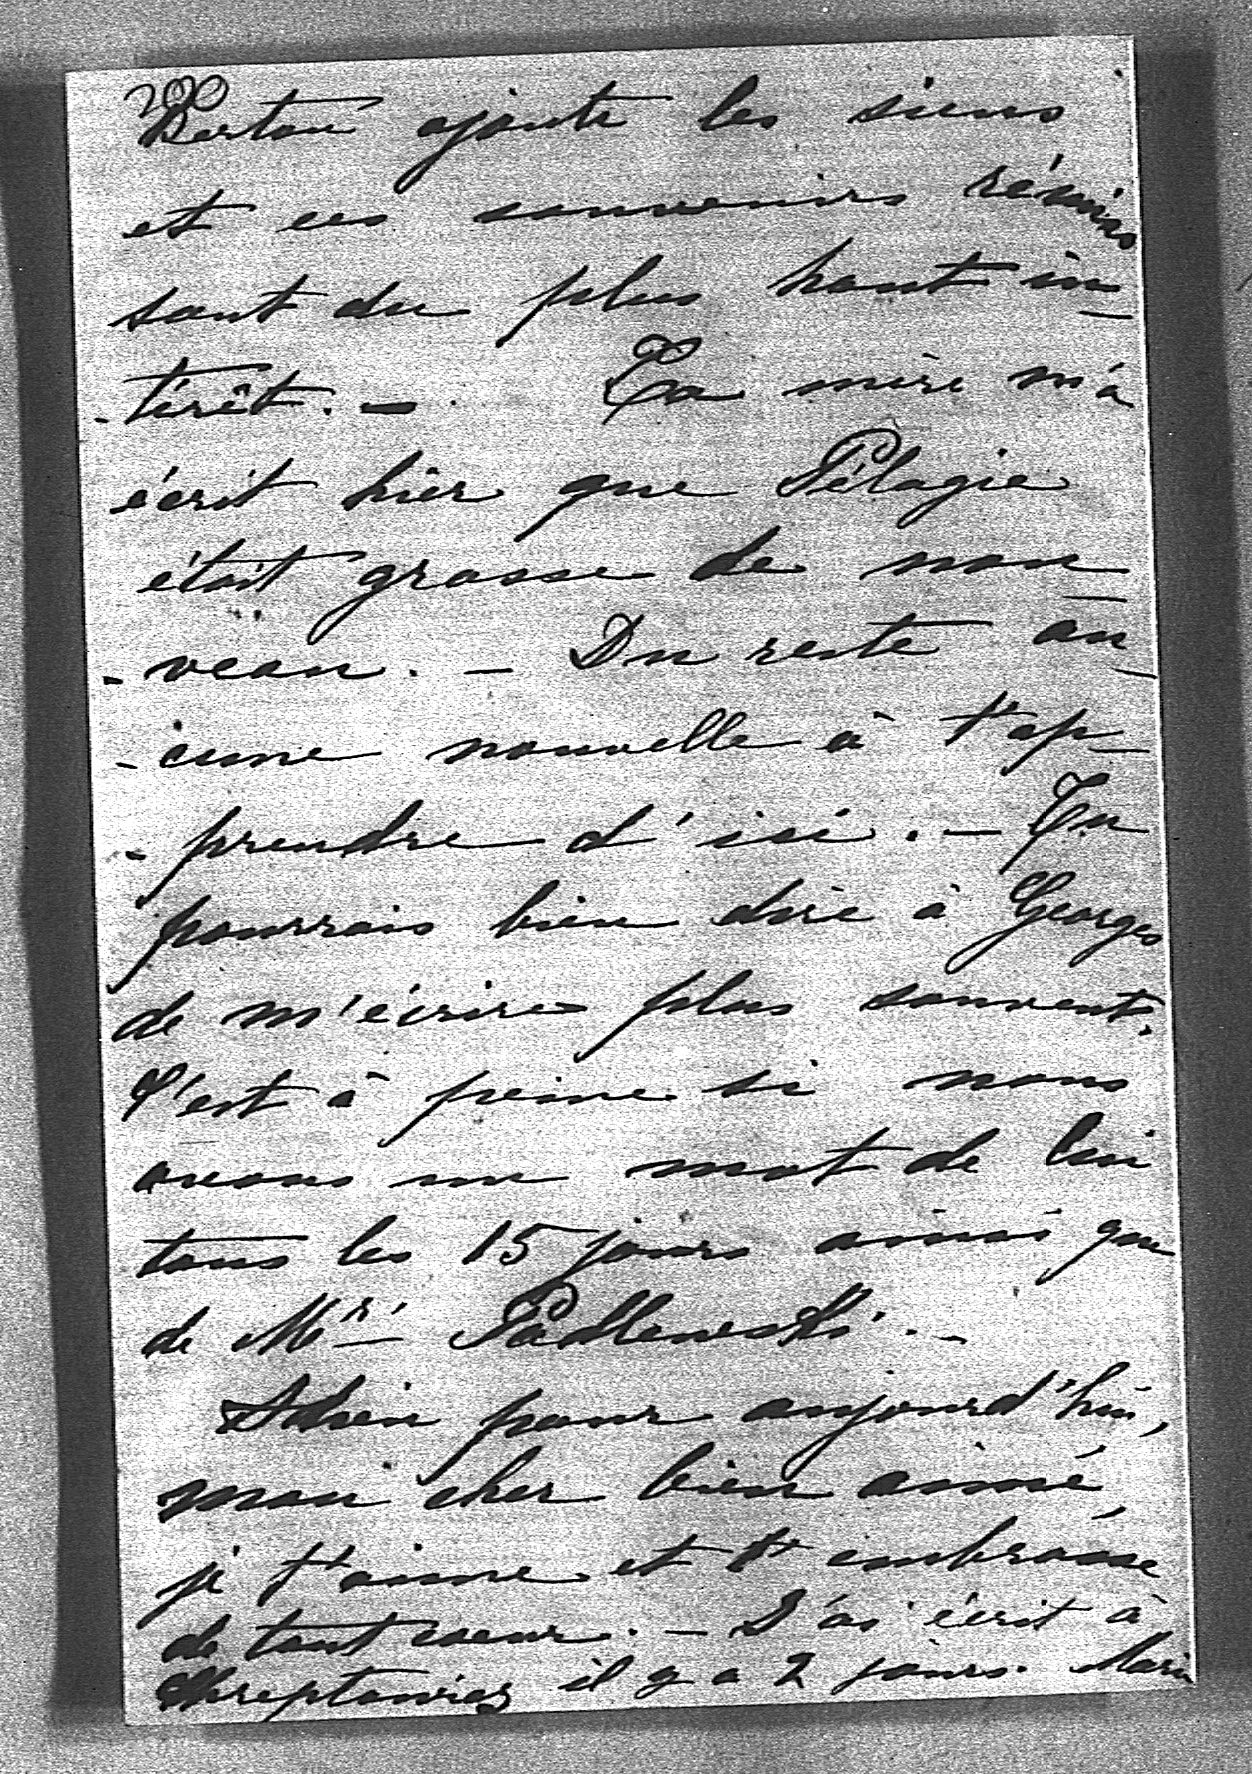 Berton ajoute les siens
et ces souvenirs réunis
sont du plus haut in-
-térêt. — Ta mère m'a
écrit hier que Pélagie
était grosse de nou-
-veau. — Du reste au-
-cune nouvelle à t'ap-
-prendre d'ici. — Tu
pourrais bien dire à Georges
de m'écrire plus souvent.
C'est à peine si nous
avons un mot de lui
tous les 15 jours ainsi que
de Mr Padlewski. —
Adieu pour aujourd'hui,
mon cher bien aimé,
je t'aime et t'embrasse
de tout coeur. — J'ai écrit à
il y a 2 jours. Marie